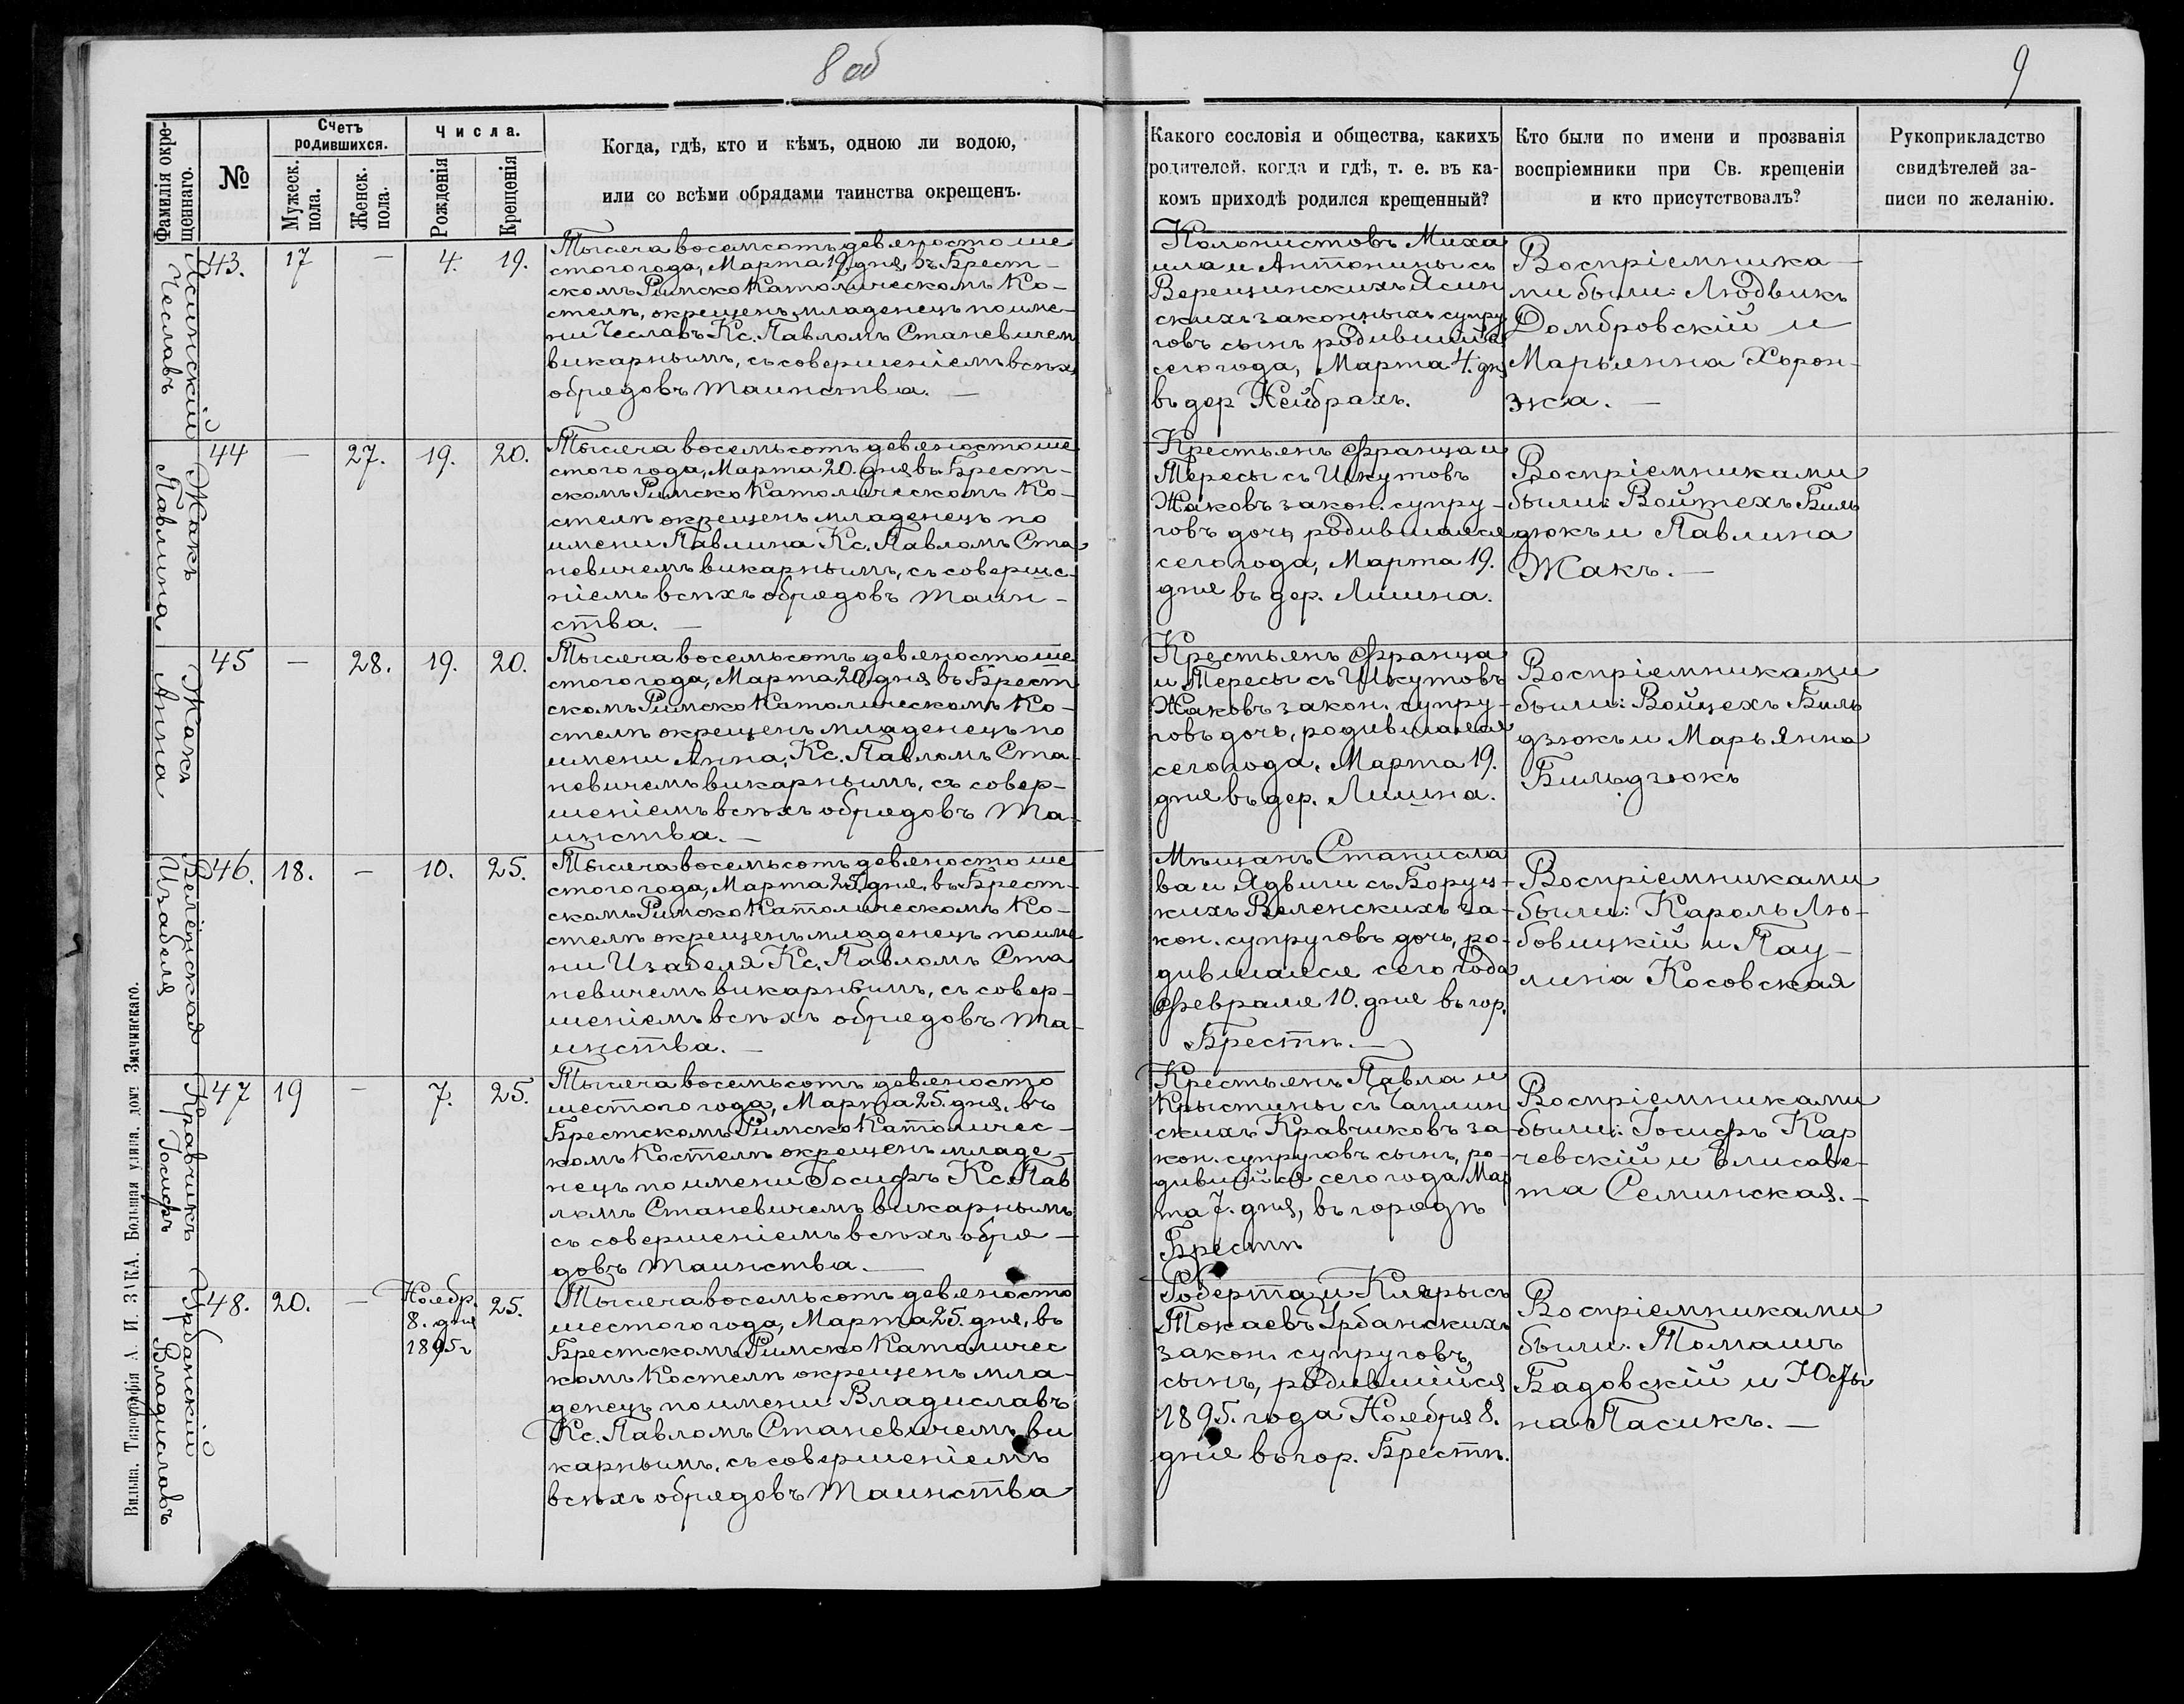 8 об
9
Фамилія окре-
щеннаго.
№
Счетъ
родившихся.
Мужеск.
пола.
Женск.
пола.
Числа.
Рожденія
Крещенія
Когда, гдѣ, кто и кѣмъ, одною ли водою,
или со всѣми обрядами таинства окрещенъ.
Какого сословія и общества, какихъ
родителей, когда и гдѣ, т. е. въ ка-
комъ приходѣ родился крещенный?
Кто были по имени и прозванія
воспріемники при Св. крещеніи
и кто присутствовалъ?
Рукоприкладство
свидѣтелей за-
писи по желанію.
Ясинскій
Чеславъ
43.
17
—
4.
19.
Тысяча восемсотъ девяносто ше
стого года, Марта 19 дня, въ Брест-
скомъ Римско Католическомъ Ко-
стелѣ, окрещенъ младенецъ по име-
ни Чеславъ Кс. Павломъ Станевичем
викарнымъ, съ совершеніемъ всѣхъ
обрядовъ Таинства. —
Колонистовъ Миха
ила и Антонины съ
Верещинскихъ Ясин
скихъ законныхъ супру
говъ сынъ родившійся
сего года, Марта 4. дня
въ дер Нейбрахъ.
Воспріемника-
ми были: Людвикъ
Домбровскій и
Марьянна Хорон-
жа. —
Жакъ
Павлина
44
—
27.
19.
20.
Тысяча восемьсотъ девяносто ше
стого года, Марта 20. дня въ Брест-
скомъ Римско Католическомъ Ко-
стелѣ окрещенъ младенецъ по
имени Павлина Кс. Павломъ Ста
невичемъ викарнымъ, съ соверше-
ніемъ всѣхъ обрядовъ Таин-
ства. —
Крестьянъ Франца и
Тересы съ Шкутовъ
Жаковъ закон. супру-
говъ дочь, родившаяся
сего года, Марта 19.
дня въ дер. Лишна.
Воспріемниками
были: Войтехъ Биль
дюкъ и Павлина
Жакъ. —
Жакъ
Анна
45
—
28.
19.
20.
Тысяча восемьсотъ девяносто ше
стого года, Марта 20 дня въ Брест
скомъ Римско Католическомъ Ко-
стелѣ окрещенъ младенецъ по
имени Анна, Кс. Павломъ Ста
невичемъ викарнымъ, съ совер-
шеніемъ всѣхъ обрядовъ Та-
инства. —
Крестьянъ Франца
и Тересы съ Шкутовъ
Жаковъ закон. супру-
говъ дочь, родившаяся
сего года, Марта 19.
дня въ дер. Лишна.
Воспріемниками
были: Войцехъ Биль
дзюкъ и Марьянна
Бильдзюкъ
Веленская
Изабеля
46.
18.
—
10.
25.
Тысяча восемьсотъ девяносто ше
стого года, Марта 25. дня, въ Брест-
скомъ Римско Католическомъ Ко-
стелѣ окрещенъ младенец по име
ни Изабеля Кс. Павломъ Ста
невичемъ викарнымъ, съ совер-
шеніемъ всѣхъ обрядовъ Та-
инства. —
Мѣщанъ Станисла
ва и Ядвиги съ Боруц-
кихъ Веленскихъ за-
кон. супруговъ дочь, ро-
дившаяся сего года
Февраля 10. дня въ гор.
Брестѣ. —
Воспріемниками
были: Кароль Лю-
бовицкій и Пау-
лина Косовская
Кравчикъ
Іосифъ
47
19
—
7.
25.
Тысяча восемьсотъ девяносто
шестого года, Марта 25. дня, въ
Брестскомъ Римско Католичес-
комъ Костелѣ окрещенъ младе-
нецъ по имени Іосифъ Кс. Пав
ломъ Станевичемъ викарнымъ
съ совершеніемъ всѣхъ обря-
довъ Таинства. —
Крестьянъ Павла и
Крыстины съ Чаплин
скихъ Кравчиковъ за-
кон. супруговъ сынъ, ро-
дившійся сего года Мар
та 7. дня, въ городѣ
Брестѣ
Воспріемниками
были: Іосифъ Кар
чевскій и Елисаве-
та Семинская. —
Урбанскій
Владиславъ
48.
20.
—
Ноябр.
8. дня
1895 г
25.
Тысяча восемьсотъ девяносто
шестого года, Марта 25. дня, въ
Брестскомъ Римско Католичес
комъ Костелѣ окрещенъ мла-
денецъ по имени Владиславъ
Кс. Павломъ Станевичемъ ви
карнымъ, съ совершеніемъ
всѣхъ обрядовъ Таинства
Роберта и Клары съ
Токаевъ Урбанскихъ
закон. супруговъ,
сынъ, родившійся
1895. года Ноября 8.
дня въ гор. Брестѣ.
Воспріемниками
были: Томашъ
Бадовскій и Юзы
на Пасикъ. —
Вильна. Типографія А. И. ЗАКА. Большая улица, домъ Змачинскаго.